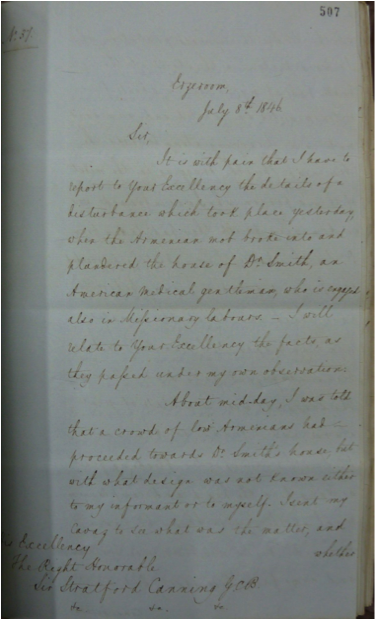 507
No. 37.
Erzeroom,
July 8th 1846
Sir,
It is with pain that I have to
report to Your Excellency the details of a
disturbance which took place yesterday,
when the Armenian mob broke into and
plundered the house of Dr. Smith, an
American Medical gentleman, who is engaged
also in Missionary labours. - I will
relate to Your Excellency the facts, as
they passed under my own observation.
About mid-day, I was told
that a crowd of low Armenians had
proceeded towards Dr. Smith's house, but
with what design was not known either
to my informant or to myself. I sent my
Cavaz to see what was the matter, and
whether
Excellency
The Right Honorable
Sir Stratford Canning GCB.
&c. &c. &c.